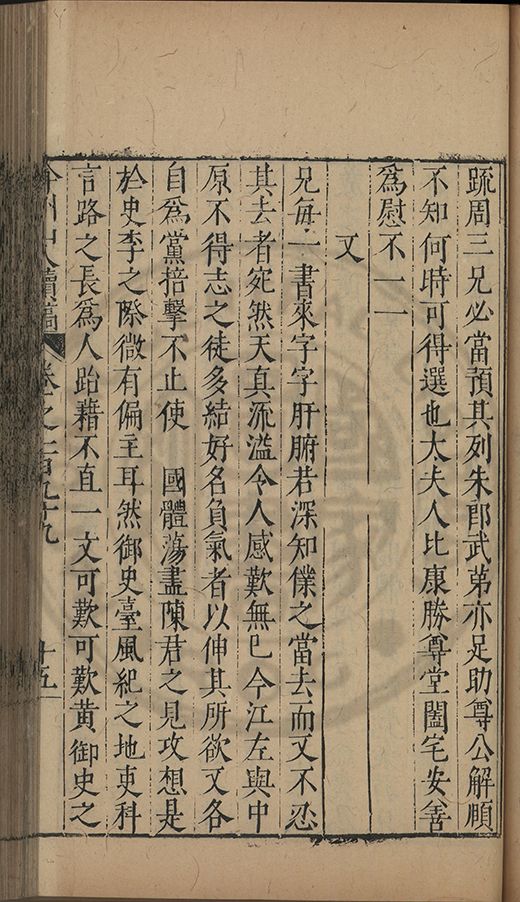 䟽周三兄必當預其列朱郎武弟亦足助尊公解順
不知何時可得選也太夫人比康勝尊堂闔宅安善
為慰不一一
又
兄每一書來字字肝腑若深知僕之當去而又不忍
其去者宛然天真流溢令人感歎無已今江左與中
原不得志之徒多結好名負氣者以伸其所欲又各
自為黨掊擊不止使 國體蕩盡陳君之見攻想是
於史李之際微有偏主耳然御史臺風紀之地吏科
言路之長為人跆藉不直一文可歎可歎黃御史之
弇州山人續稿 卷之一百九十九 十五